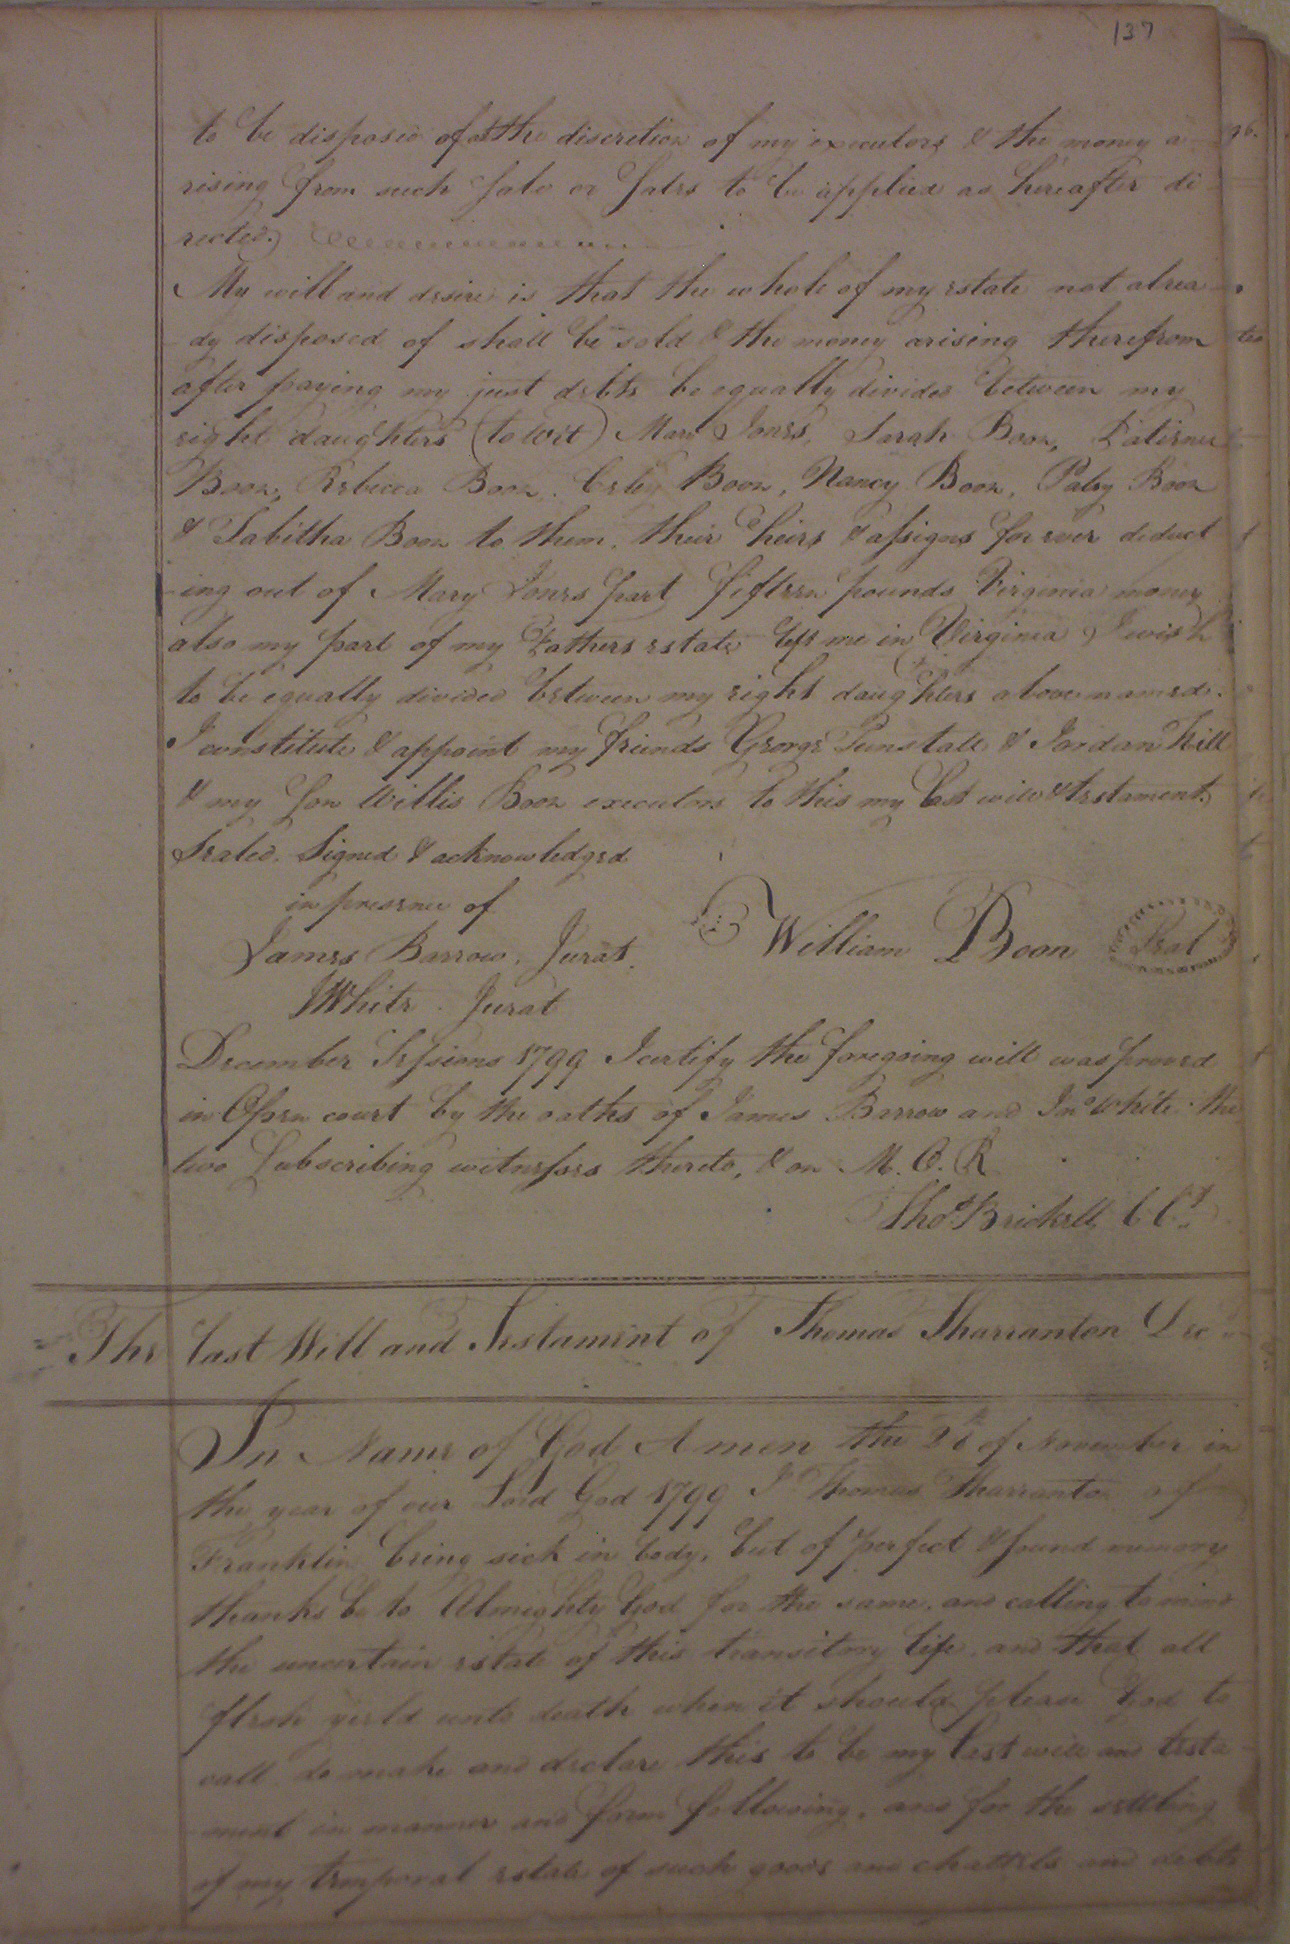 137
to be disposed of at the discretion of my executors & the money a
rising from such Sale or Sales to be applied as hereafter di
rected.
My will and desire is that the whole of my estate not alrea
dy disposed of shall be sold & the money arising therefrom
after paying my just debts be equally divided between my
eight daughters (to wit) Mary Jones, Sarah Boon,
Boon, Rebecca Boon, Boon, Nancy Boon, Patsy Boon
& Tabitha Boon to them, their heirs & assigns forever deduct
ing out of Mary Jones part fifteen pounds Virginia money
also my part of my Fathers estate left me in Virginia I wish
to be equally divided between my eight daughters above named.
I constitute & appoint my friends George Tunstall & Jordan Hill
& my Son Willis Boon executors to this my last will & testament.
Sealed. Signed & acknowledged
in presence of
James Barrow, Jurat.
William Boon Seal
JWhite. Jurat
December Sessions 1799 I certify the foregoing will was proved
in Open court by the oaths of James Barrow and Jno White the
two Subscribing witnesses thereto, & on M. O. R
Thos Brickell C Ct
The last Will and Testament of Thomas Tharranton Dec
In Name of God Amen the of November in
the year of our Lord God 1799 I Thomas Tharranton of
Franklin being sick in body, but of perfect & sound memory
thanks be to Almighty God for the same, and calling to mind
the uncertain estate of this transitory life and that all
flesh yield unto death when it should please God to
call do make and declare this to be my last will and testa
ment in manner and form following, and for the settling
of my temporal estate of such goods and chattels and debts